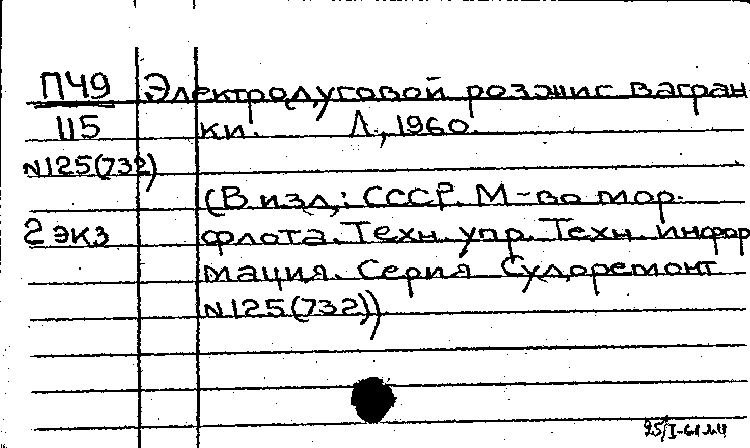 ПЧ9 Электродуговой розжиг вагран
115 ки. Л., 1960.
N125(732)
(В изд.: СССР. М-во мор.
2 экз флота. Техн. упр. Техн. инфор
мация. Серия Судоремонт
N125(732))